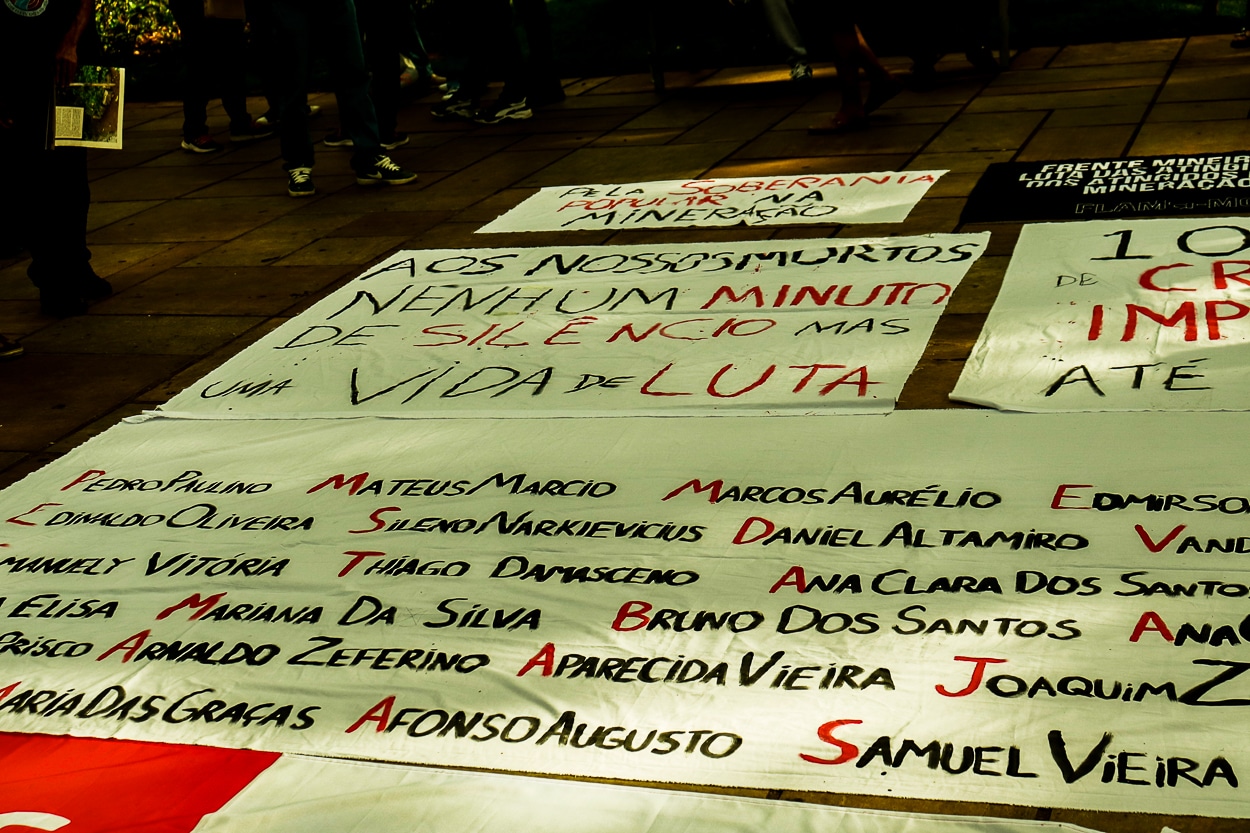 PELA SOBERANIA
POPULAR NA
MINERAÇÃO
FRENTE MINEIR
LUTA DAS ATINGI
DOS ATINGIDOS
MINERAÇÃO
AOS NOSSOS MORTOS
NENHUM MINUTO
DE SILÊNCIO MAS
UMA VIDA DE LUTA
10
DE CR
IMP
ATÉ
PEDRO PAULINO MATEUS MARCIO MARCOS AURÉLIO EDMIRSO
EDINALDO OLIVEIRA SILENO NARKIEVICIUS DANIEL ALTAMIRO VAND
EMANUELY VITÓRIA THIAGO DAMASCENO ANA CLARA DOS SANTOS
ELISA MARIANA DA SILVA BRUNO DOS SANTOS ANA
PRISCO ARNALDO ZEFERINO APARECIDA VIEIRA JOAQUIM Z
MARIA DAS GRAÇAS AFONSO AUGUSTO SAMUEL VIEIRA